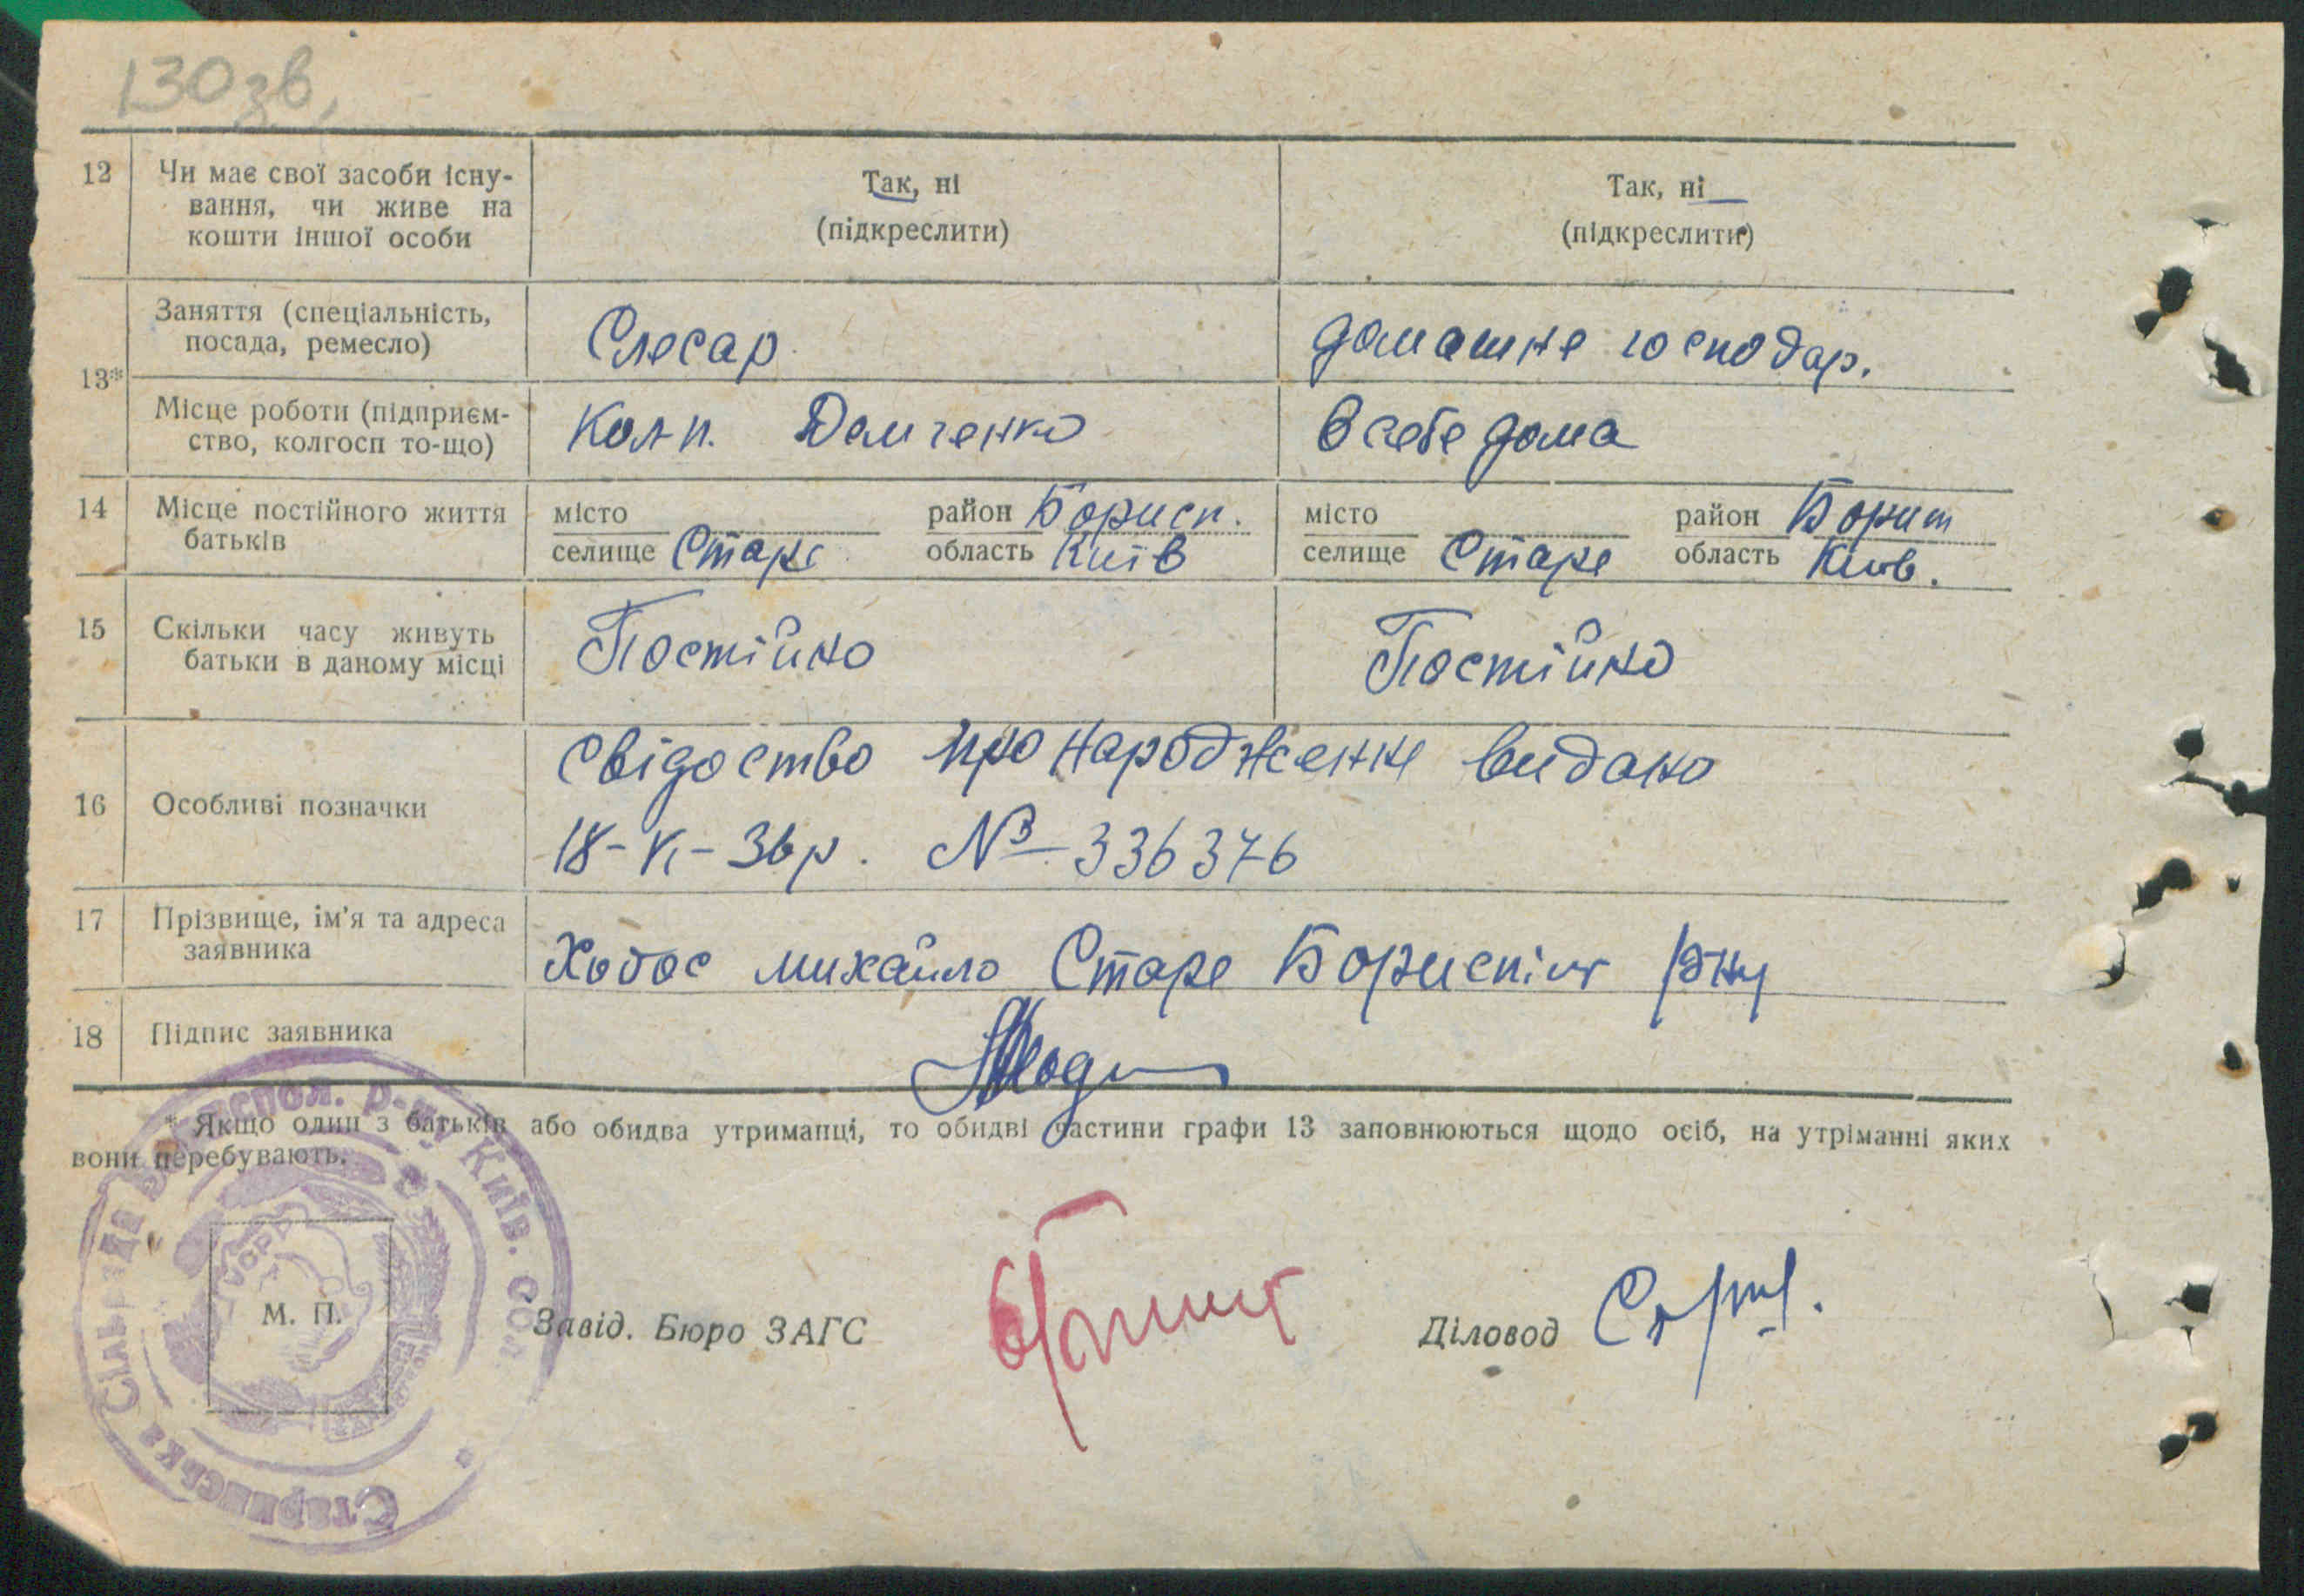 130зв.
12 Чи має свої засоби існу-
вання, чи живе на
кошти іншої особи
Так, ні
(підкреслити)
Так, ні
(підкреслити)
13*
Заняття (спеціальність,
посада, ремесло)
Слесар
домашнє господар.
Місце роботи (підприєм-
ство, колгосп то-що)
Демченко
В себе дома
14 Місце постійного життя
батьків
місто район Борисп.
селище Старе область Київ
місто район Борисп
селище Старе область Київ.
15 Скільки часу живуть
батьки в даному місці
Постійно
Постійно
16 Особливі позначки
Свідоство про народження видано
18-VI-36р. № 336376
17 Прізвище, ім'я та адреса
заявника
Ходос михайло Старе Бориспіль р-ну
18 Підпис заявника
* Якщо один з батьків або обидва утриманці, то обидві частини графи 13 заповнюються щодо осіб, на утріманні яких
вони перебувають.
М. П.
Завід. Бюро ЗАГС
Діловод
Старинська Сільрада Бориспол. р-ну Київ. обл.